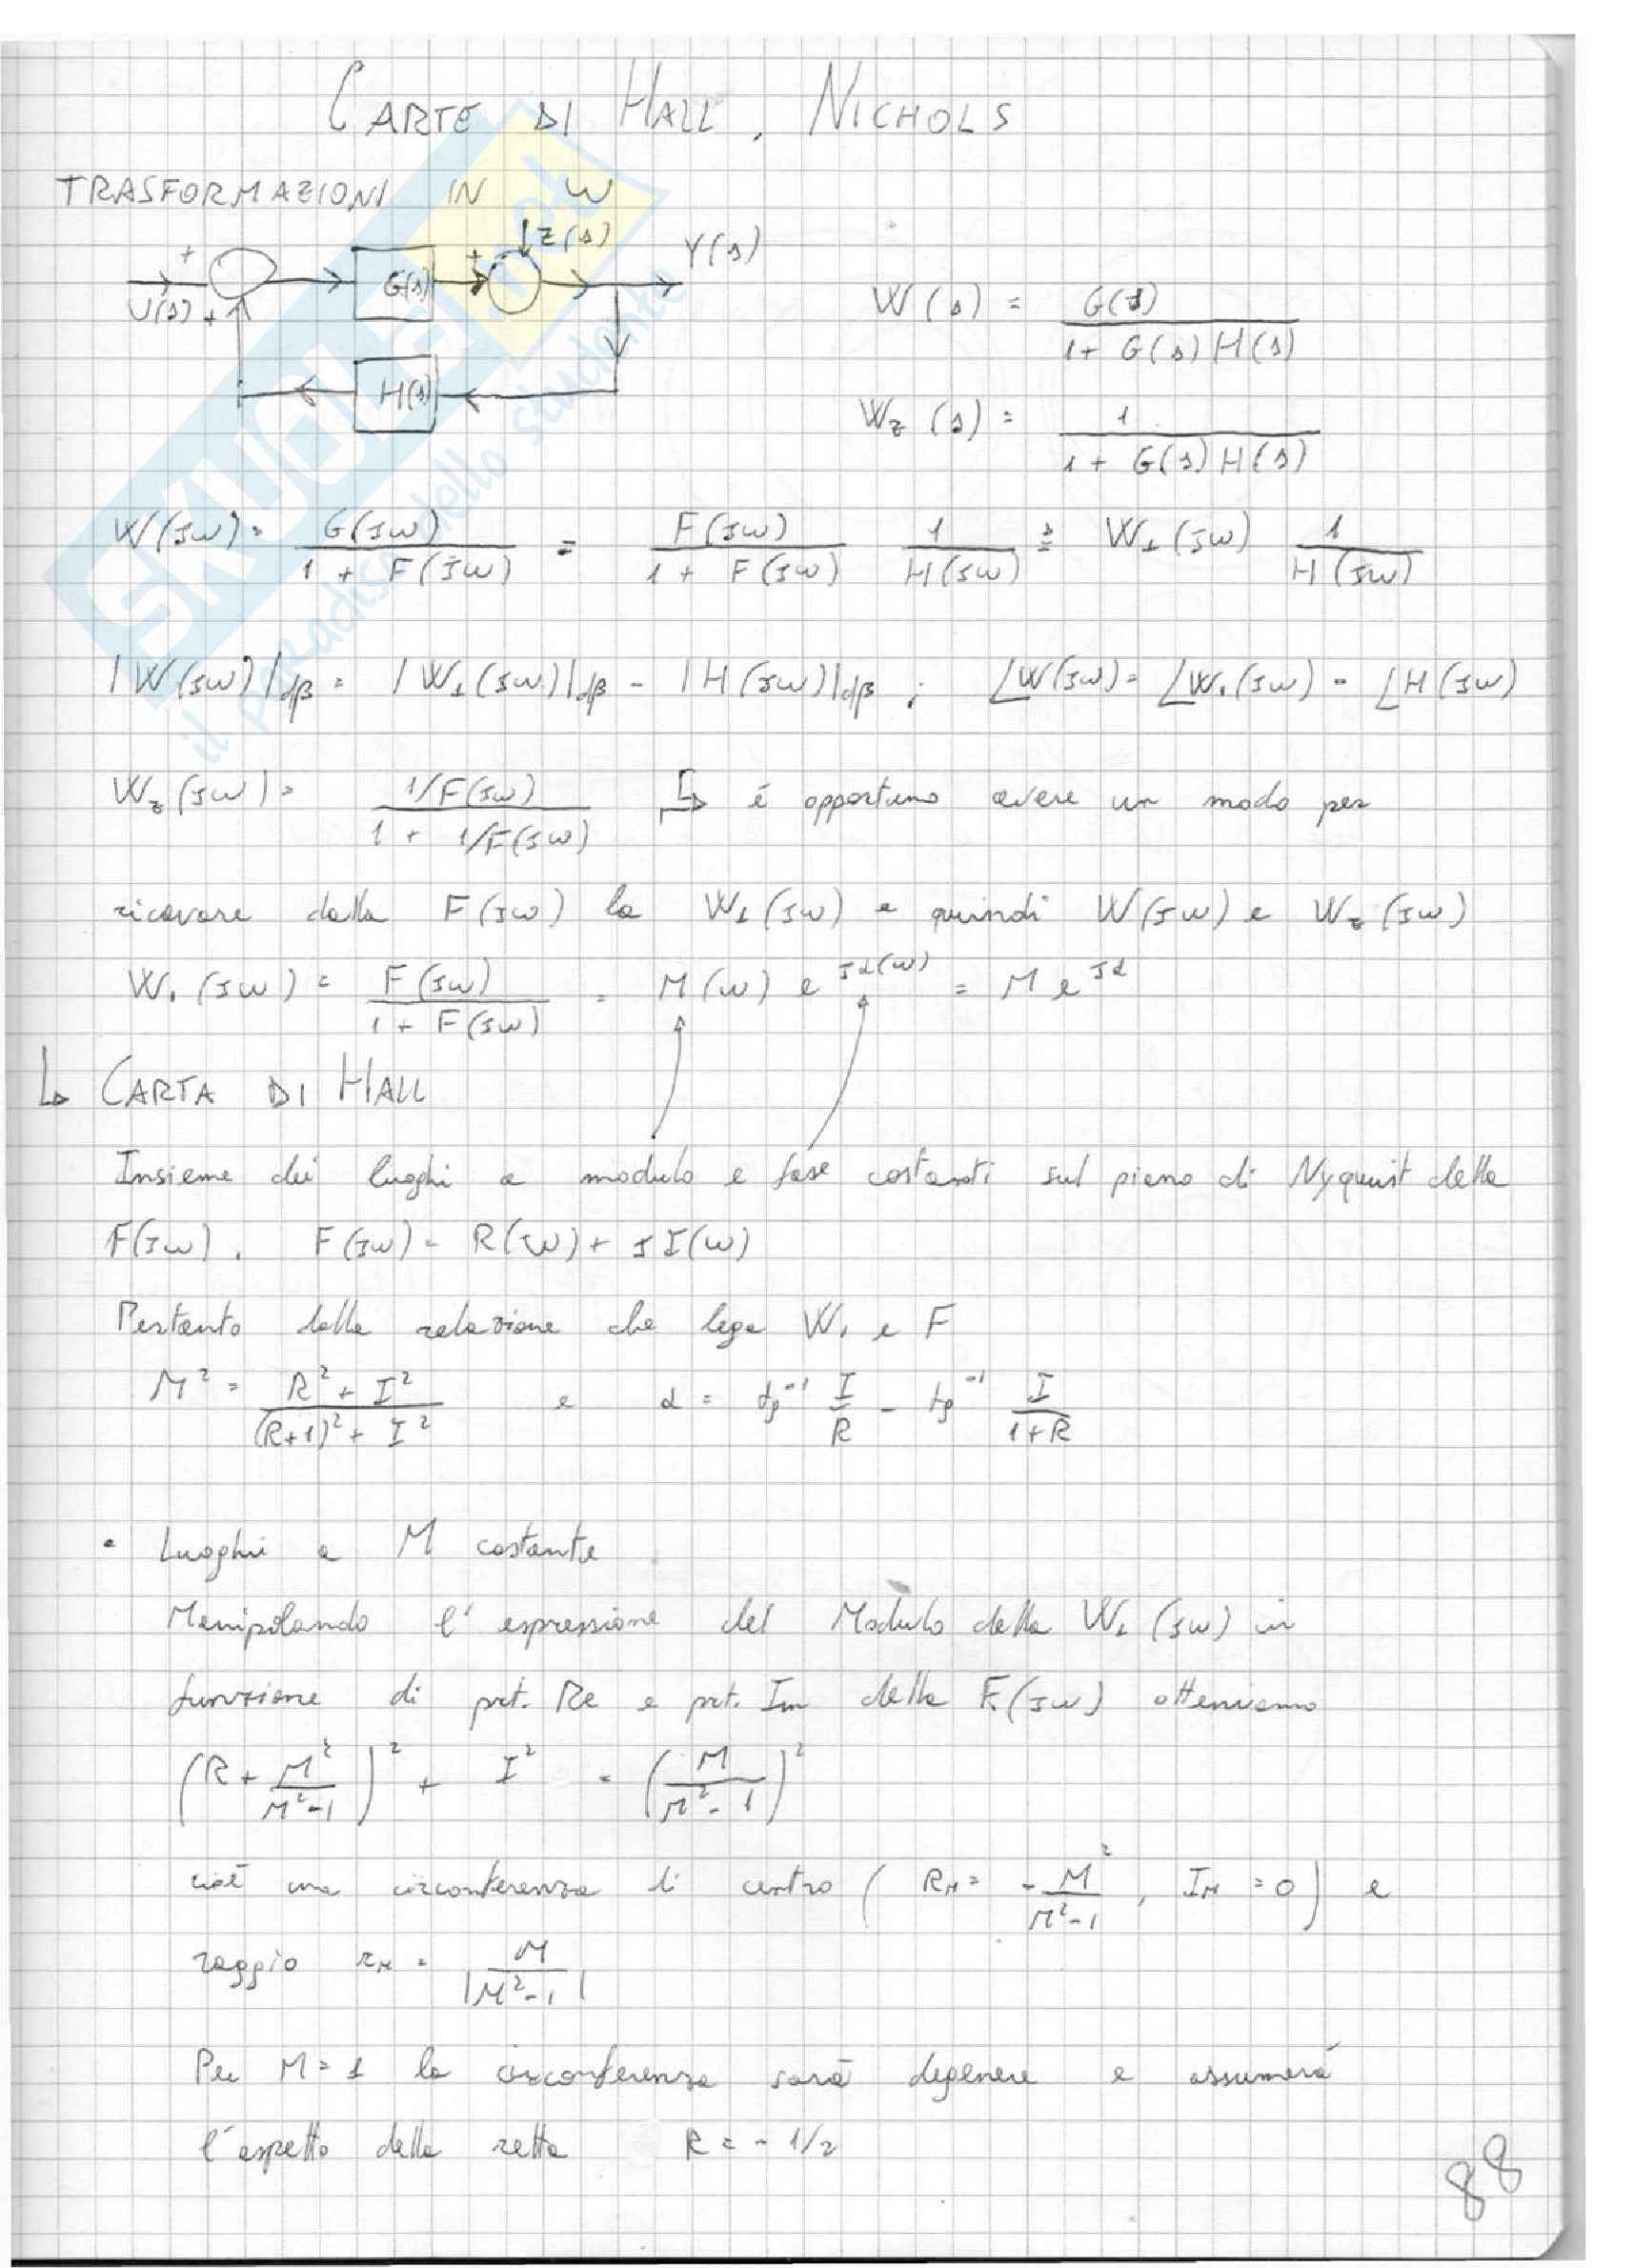 CARTE DI HALL, NICHOLS
TRASFORMAZIONI IN W
U(s) + + G(s) + Z(s) Y(s)
H(s)
W(s) = G(s) / (1 + G(s) H(s))
Wz(s) = 1 / (1 + G(s) H(s))
W(jω) = G(jω) / (1 + F(jω)) = F(jω) / (1 + F(jω)) 1 / H(jω) ≜ W1(jω) 1 / H(jω)
|W(jω)|dB = |W1(jω)|dB - |H(jω)|dB ; ∠W(jω) = ∠W1(jω) - ∠H(jω)
Wz(jω) = 1/F(jω) / (1 + 1/F(jω)) ↳ é opportuno avere un modo per
ricavare dalla F(jω) la W1(jω) e quindi W(jω) e Wz(jω)
W1(jω) = F(jω) / (1 + F(jω)) = M(ω) e^jα(ω) = M e^jα
↳ CARTA DI HALL
Insieme dei luoghi a modulo e fase costanti sul piano di Nyquist della
F(jω). F(jω) = R(ω) + jI(ω)
Pertanto dalla relazione che lega W1 e F
M² = (R² + I²) / ((R+1)² + I²) e α = tg⁻¹ I/R - tg⁻¹ I/(1+R)
• Luoghi a M costante
Manipolando l'espressione del Modulo della W1(jω) in
funzione di prt. Re e prt. Im della F(jω) otteniamo
(R + M²/(M²-1))² + I² = (M/(M²-1))²
cioè una circonferenza di centro (RM = - M²/(M²-1), IM = 0) e
raggio rM = M/|M²-1|
Per M = 1 la circonferenza sarà degenere e assumerà
l'aspetto della retta R = - 1/2
88
SKUOLA.net
il paradiso dello studente